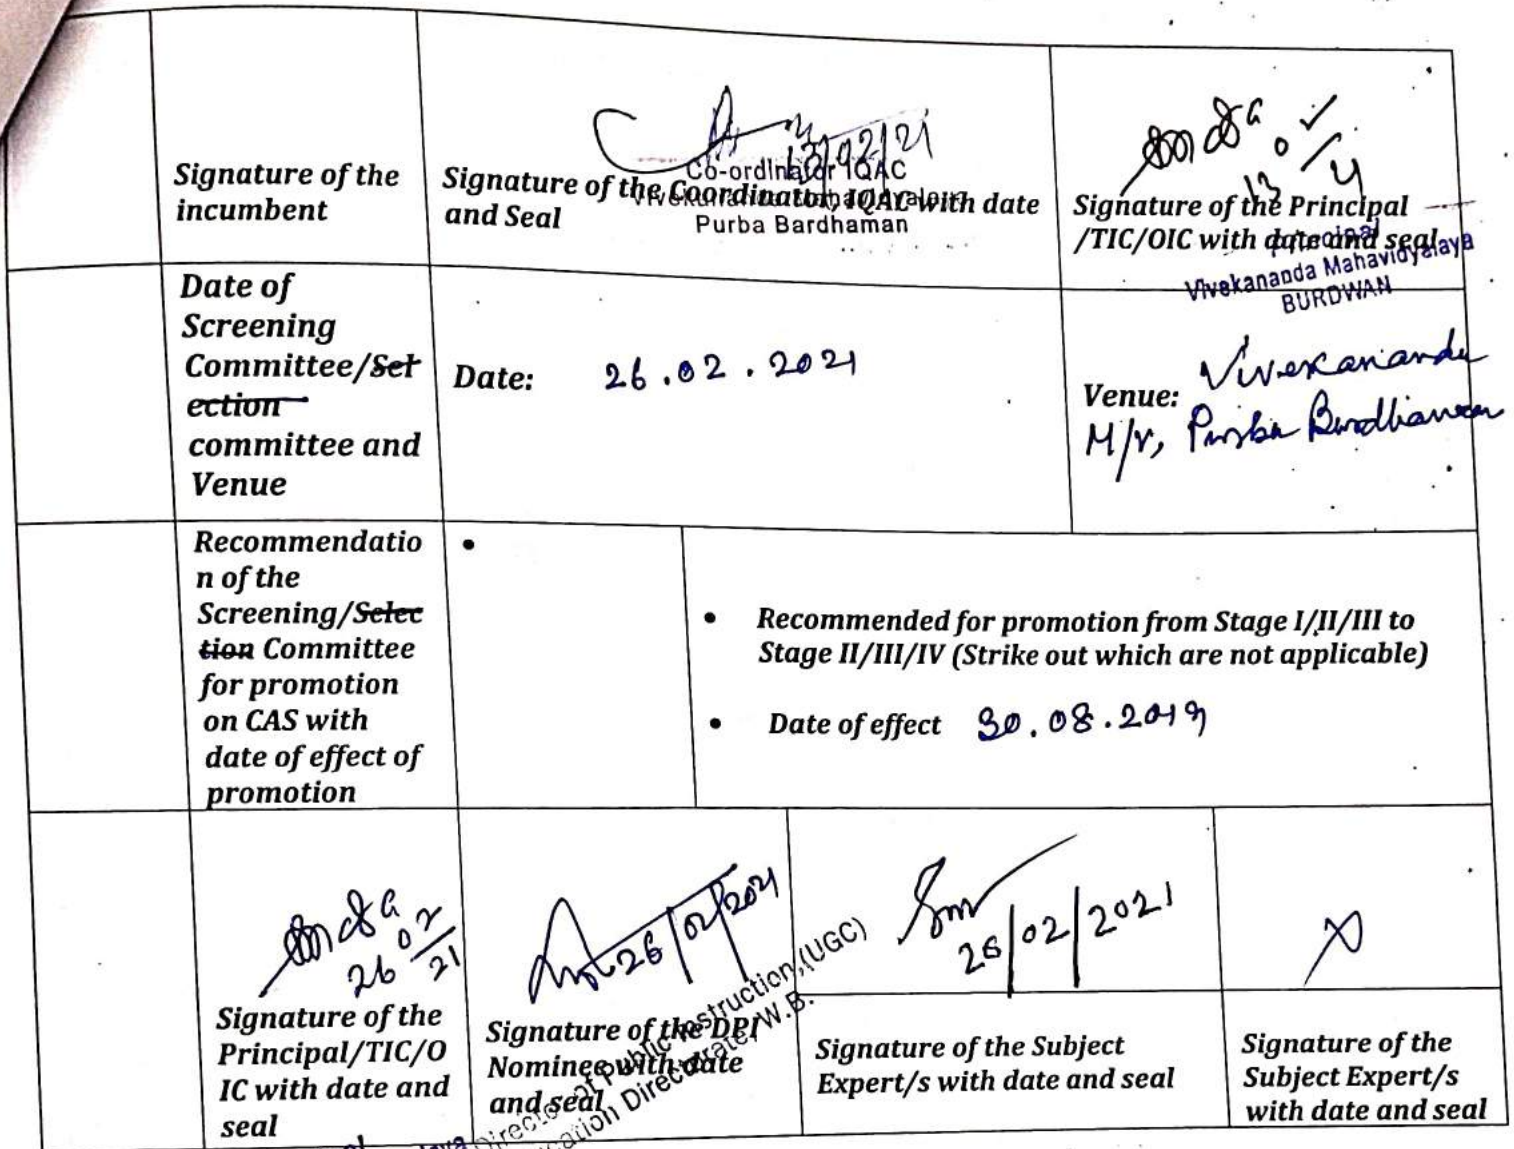 13/02/21
Co-ordinator IQAC
Signature of the
incumbent
Signature of the Coordinator, IQAC with date
and Seal
Purba Bardhaman
Signature of the Principal
/TIC/OIC with date and seal
Principal
Vivekananda Mahavidyalaya
BURDWAN
Date of
Screening
Committee/Sel
ection
committee and
Venue
Date: 26.02.2021
Venue: Vivekananda
M/V, Purba Bardhaman
Recommendatio
n of the
Screening/Selec
tion Committee
for promotion
on CAS with
date of effect of
promotion
•
• Recommended for promotion from Stage I/II/III to
Stage II/III/IV (Strike out which are not applicable)
• Date of effect 30.08.2019
26/02/2021
26/02/2021
Signature of the
Principal/TIC/O
IC with date and
seal
Signature of the DPI
Nominee with date
and seal
Director of Public Instruction,(UGC)
Directorate, W.B.
Signature of the Subject
Expert/s with date and seal
Signature of the
Subject Expert/s
with date and seal